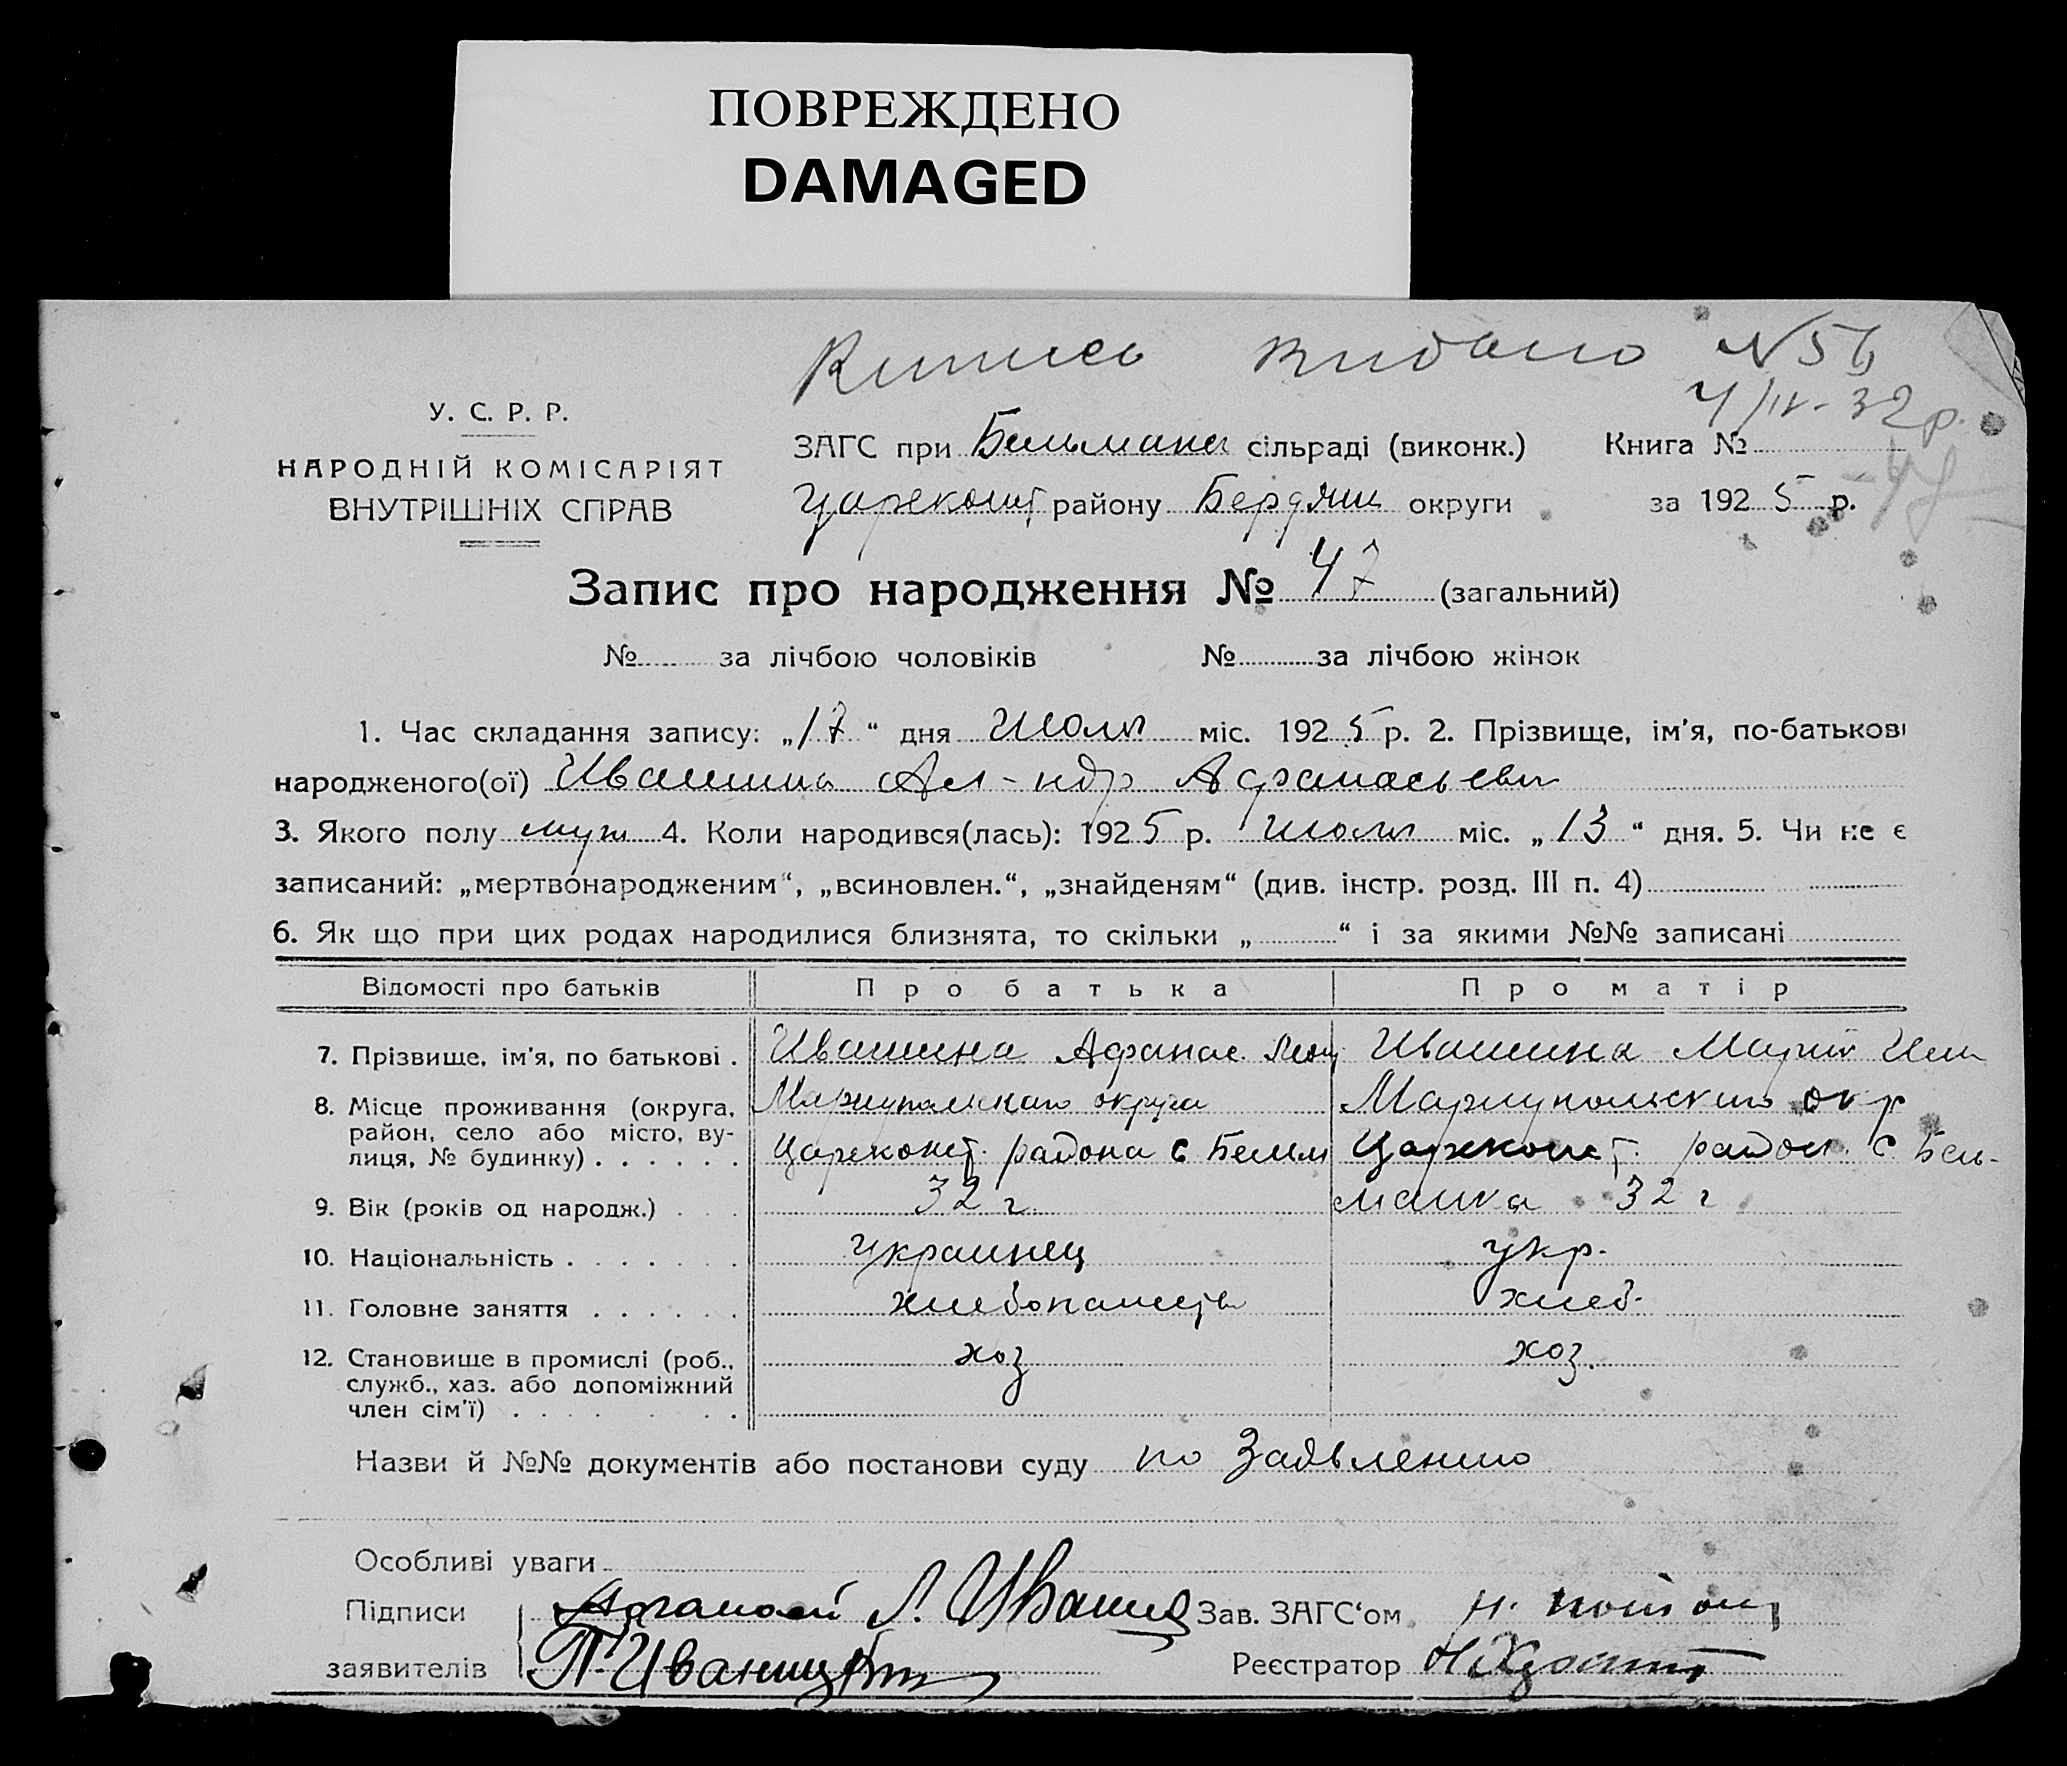 ПОВРЕЖДЕНО
DAMAGED
Випись видано N 56
4/IV-32 р.
У. С. Р. Р.
НАРОДНІЙ КОМІСАРІЯТ
ВНУТРІШНІХ СПРАВ
ЗАГС при Бельманск сільраді (виконк.) Книга №
Цареконст району Бердянск округи за 1925 р.
47
Запис про народження № 47 (загальний)
№ за лічбою чоловіків № за лічбою жінок
1. Час складання запису: „17“ дня Июля міс. 1925 р. 2. Прізвище, ім'я, по-батькові
народженого(ої) Ивашина Ал-ндр Афанасьевич
3. Якого полу муж 4. Коли народився(лась): 1925 р. Июля міс. „13“ дня. 5. Чи не є
записаний: „мертвонародженим“, „всиновлен.“, „знайденям“ (див. інстр. розд. III п. 4)
6. Як що при цих родах народилися близнята, то скільки „ “ і за якими №№ записані
Відомості про батьків Про батька Про матір
7. Прізвище, ім'я, по батькові . Ивашина Афанас. Ивашина Мария
8. Місце проживання (округа, Мариупольскаго округа Мариупольского окр
район, село або місто, ву-
лиця, № будинку) . . . . . . Цареконст. района с Бельм Цареконст. район. с Бель-
9. Вік (років од народж.) . . . 32 г манка 32 г
10. Національність . . . . . . . украинец укр.
11. Головне заняття . . . . . . хлебопашество хлеб.
12. Становище в промислі (роб., хоз хоз.
служб., хаз. або допоміжний
член сім'ї) . . . . . . .
Назви й №№ документів або постанови суду по Заявлению
Особливі уваги
Підписи Афанасий Л. Ивашина Зав. ЗАГС'ом
заявителів П. Реєстратор